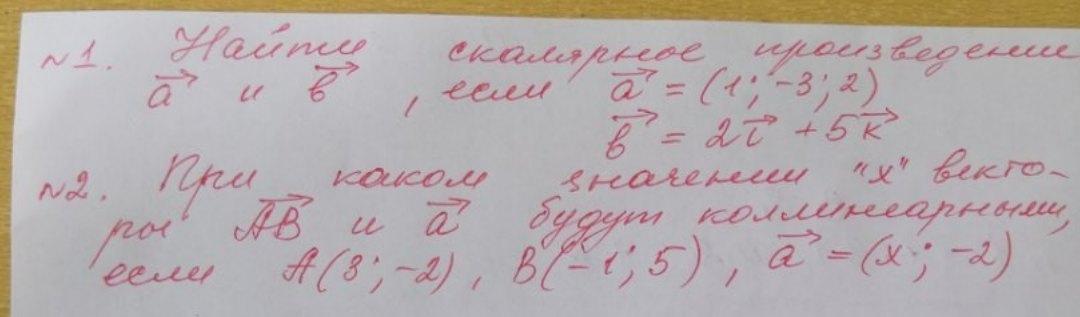 №1. Найти скалярное произведение
a⃗ и b⃗, если a⃗ = (1; -3; 2)
b⃗ = 2i⃗ + 5k⃗
№2. При каком значении "x" векто-
ры AB⃗ и a⃗ будут коллинеарными,
если A(3; -2), B(-1; 5), a⃗ = (x; -2)